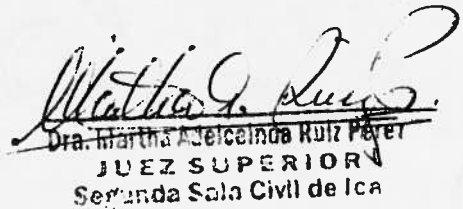 Dra. Martha Adelceinda Ruiz Perez
JUEZ SUPERIOR
Segunda Sala Civil de Ica